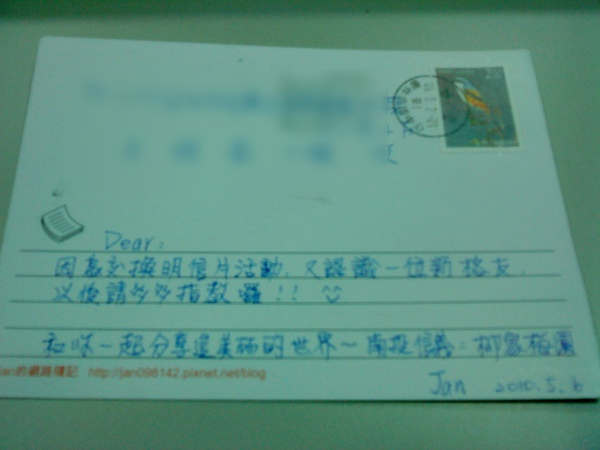 Dear:
因為交換明信片活動,又認識一位新格友,
以後請多多指教囉!! 
和咪一起分享這美麗的世界~南投信義:柳家梅園
an的網路隨記 http://jan098142.pixnet.net/blog
Jan 2010.5.6